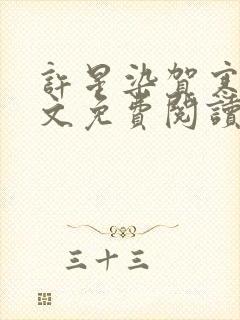 許星染賀
文免費閱讀
三十三